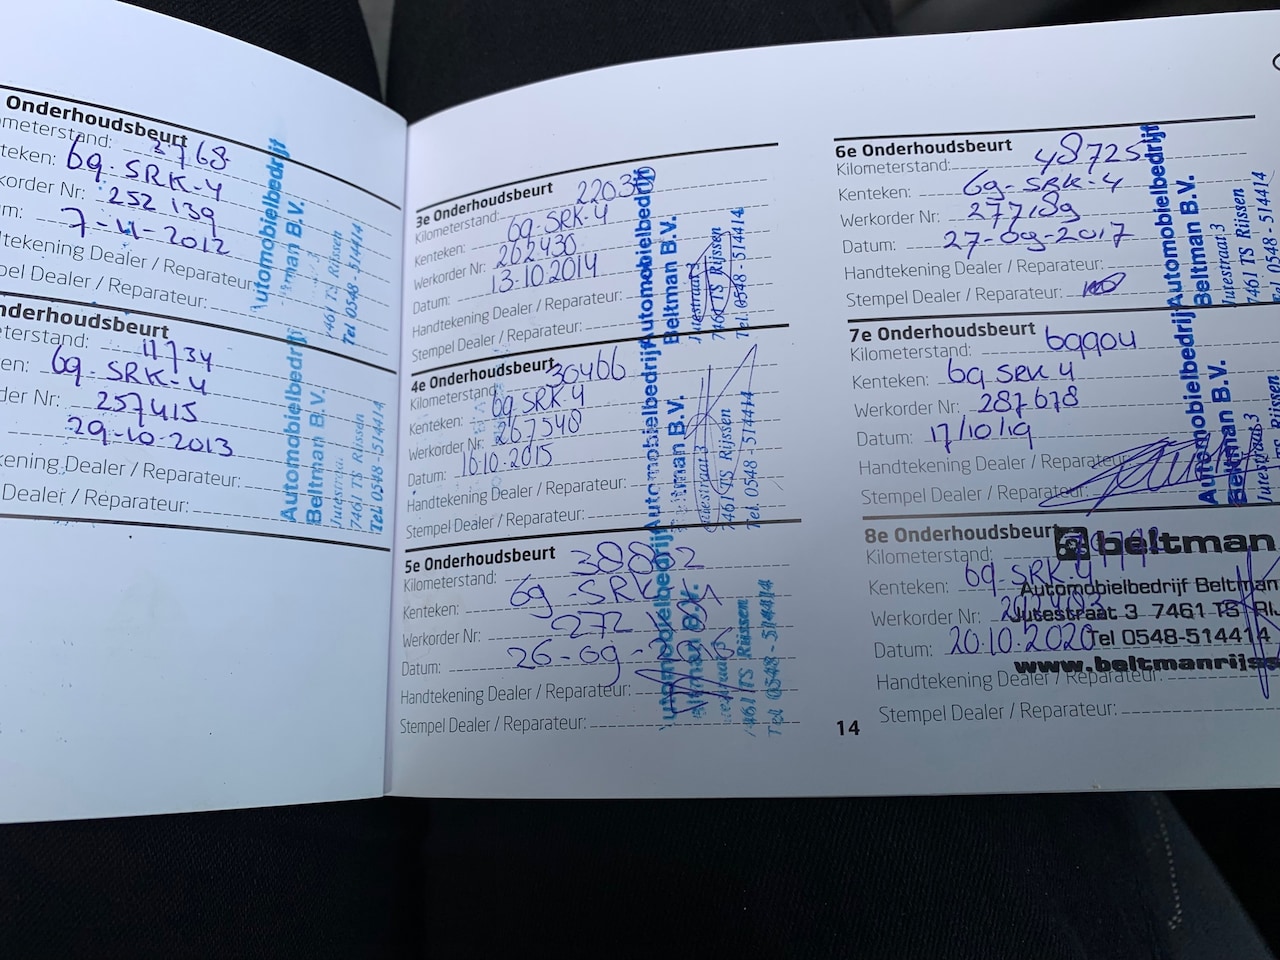 Onderhoudsbeurt
meterstand: 3768
teken: 69-SRK-4
korder Nr: 252 139
um: 7-11-2012
dtekening Dealer / Reparateur:
pel Dealer / Reparateur:
Automobielbedrijf
B.V.
7461 TS Rijssen
Tel 0548-514414
nderhoudsbeurt
eterstand: 11734
ken: 69-SRK-4
der Nr: 257415
29-10-2013
kening Dealer / Reparateur:
Dealer / Reparateur:
Automobielbedrijf
Beltman B.V.
7461 TS Rijssen
Tel 0548-514414
3e Onderhoudsbeurt
Kilometerstand:
Kenteken: 69-SRK-4
Werkorder Nr: 262430
Datum: 13-10-2014
Handtekening Dealer / Reparateur:
Stempel Dealer / Reparateur:
Automobielbedrijf
Beltman B.V.
Jutestraat 3
7461 TS Rijssen
Tel. 0548 - 514414
4e Onderhoudsbeurt
Kilometerstand: 30466
Kenteken: 69 SRK 4
Werkorder Nr: 267548
Datum: 16-10-2015
Handtekening Dealer / Reparateur:
Stempel Dealer / Reparateur:
Automobielbedrijf
Beltman B.V.
Jutestraat 3
7461 TS Rijssen
Tel. 0548 - 514414
5e Onderhoudsbeurt
Kilometerstand: 38882
Kenteken: 69-SRK-4
Werkorder Nr: 272
Datum: 26-09-
Handtekening Dealer / Reparateur:
Stempel Dealer / Reparateur:
utomobielbedrijf
B.V.
7461 TS Rijssen
Tel 0548 - 514414
14
6e Onderhoudsbeurt
Kilometerstand: 48725
Kenteken: 69-SRK-4
Werkorder Nr: 277189
Datum: 27-09-2017
Handtekening Dealer / Reparateur:
Stempel Dealer / Reparateur:
Automobielbedrijf
Beltman B.V.
Jutestraat 3
7461 TS Rijssen
Tel. 0548 - 514414
7e Onderhoudsbeurt
Kilometerstand: 69904
Kenteken: 69 SRK 4
Werkorder Nr: 287678
Datum: 17/10/19
Handtekening Dealer / Reparateur:
Stempel Dealer / Reparateur:
Automobielbedrijf
Beltman B.V.
Jutestraat 3
7461 TS Rijssen
8e Onderhoudsbeurt
Kilometerstand:
Kenteken: 69-SRK-4
Werkorder Nr:
Datum: 20.10.2020
Handtekening Dealer / Reparateur:
Stempel Dealer / Reparateur:
beltman
Automobielbedrijf Beltman
Jutestraat 3 7461 TS
Tel 0548-514414
www.beltmanrijss